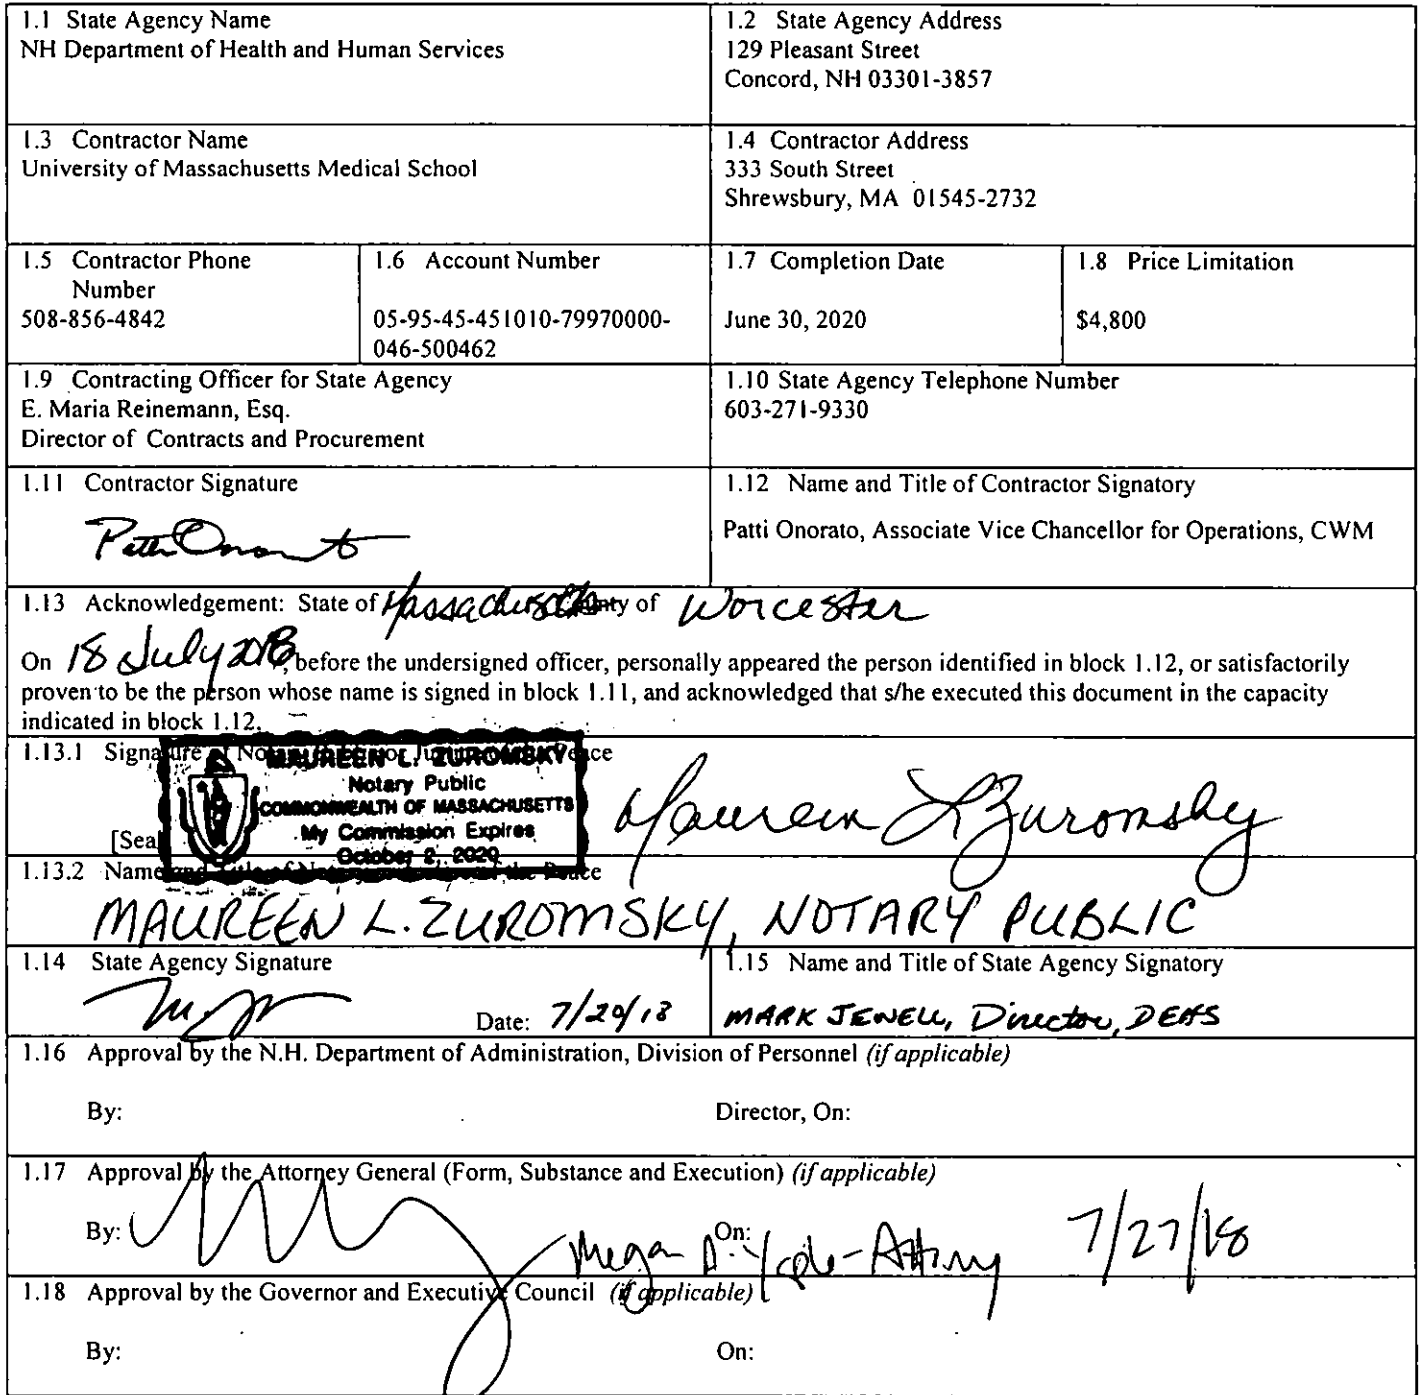 1.1 State Agency Name
NH Department of Health and Human Services
1.2 State Agency Address
129 Pleasant Street
Concord, NH 03301-3857
1.3 Contractor Name
University of Massachusetts Medical School
1.4 Contractor Address
333 South Street
Shrewsbury, MA 01545-2732
1.5 Contractor Phone
Number
508-856-4842
1.6 Account Number
05-95-45-451010-79970000-
046-500462
1.7 Completion Date
June 30, 2020
1.8 Price Limitation
$4,800
1.9 Contracting Officer for State Agency
E. Maria Reinemann, Esq.
Director of Contracts and Procurement
1.10 State Agency Telephone Number
603-271-9330
1.11 Contractor Signature
Patti Onorato
1.12 Name and Title of Contractor Signatory
Patti Onorato, Associate Vice Chancellor for Operations, CWM
1.13 Acknowledgement: State of Massachusetts County of Worcester
On 18 July 2018, before the undersigned officer, personally appeared the person identified in block 1.12, or satisfactorily
proven to be the person whose name is signed in block 1.11, and acknowledged that s/he executed this document in the capacity
indicated in block 1.12.
1.13.1 Signature of Notary Public or Justice of the Peace
MAUREEN L. ZUROMSKY
Notary Public
COMMONWEALTH OF MASSACHUSETTS
My Commission Expires
October 2, 2020
[Sea
Maureen L Zuromsky
1.13.2 Name and Title of Notary or Justice of the Peace
MAUREEN L. ZUROMSKY, NOTARY PUBLIC
1.14 State Agency Signature
Date: 7/20/18
1.15 Name and Title of State Agency Signatory
MARK JEWELL, Director, DEAS
1.16 Approval by the N.H. Department of Administration, Division of Personnel (if applicable)
By:
Director, On:
1.17 Approval by the Attorney General (Form, Substance and Execution) (if applicable)
By:
On:
Megan A. 7/27/18
1.18 Approval by the Governor and Executive Council (if applicable)
By:
On: